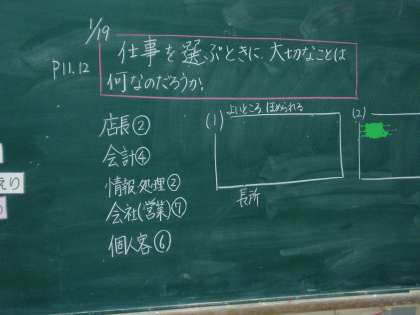 1/19
P11.12
仕事を選ぶときに、大切なことは
何なのだろうか。
店長②
会計④
情報処理②
会社(営業)⑦
個人客⑥
(1)
よいところ、ほめられる
長所
(2)